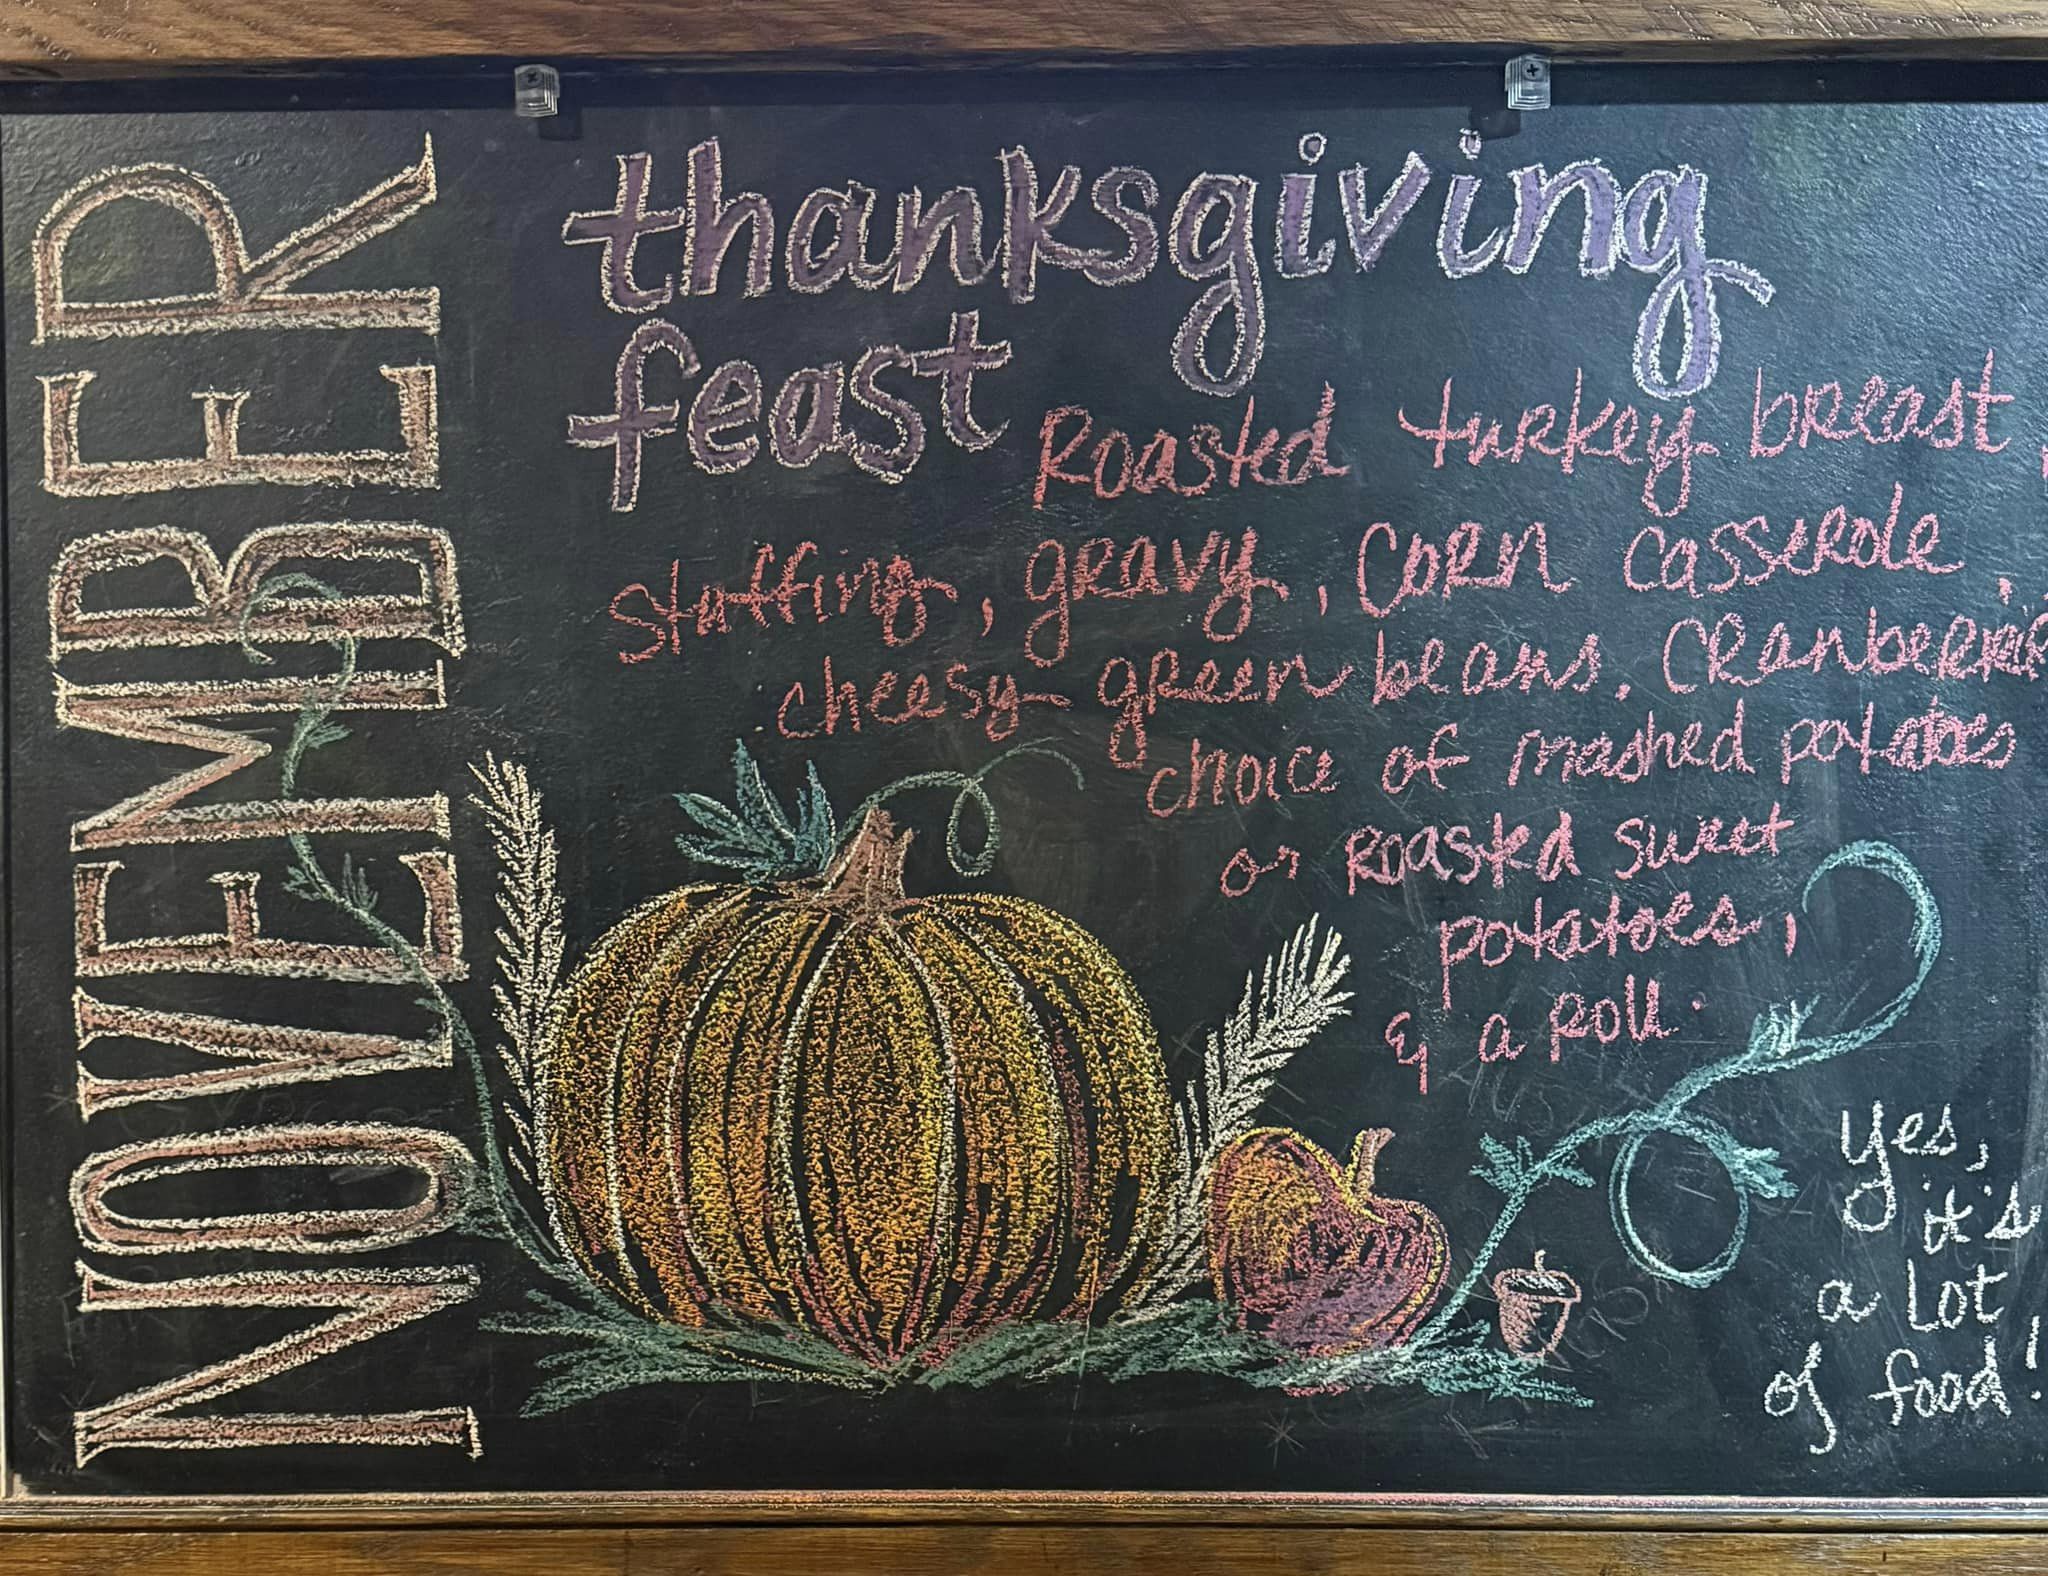 NOVEMBER
thanksgiving
feast
Roasted turkey breast,
stuffing, gravy, corn casserole,
cheesy green beans, cranberries
choice of mashed potatoes
or roasted sweet
potatoes,
& a roll.
Yes,
it's
a lot
of food!